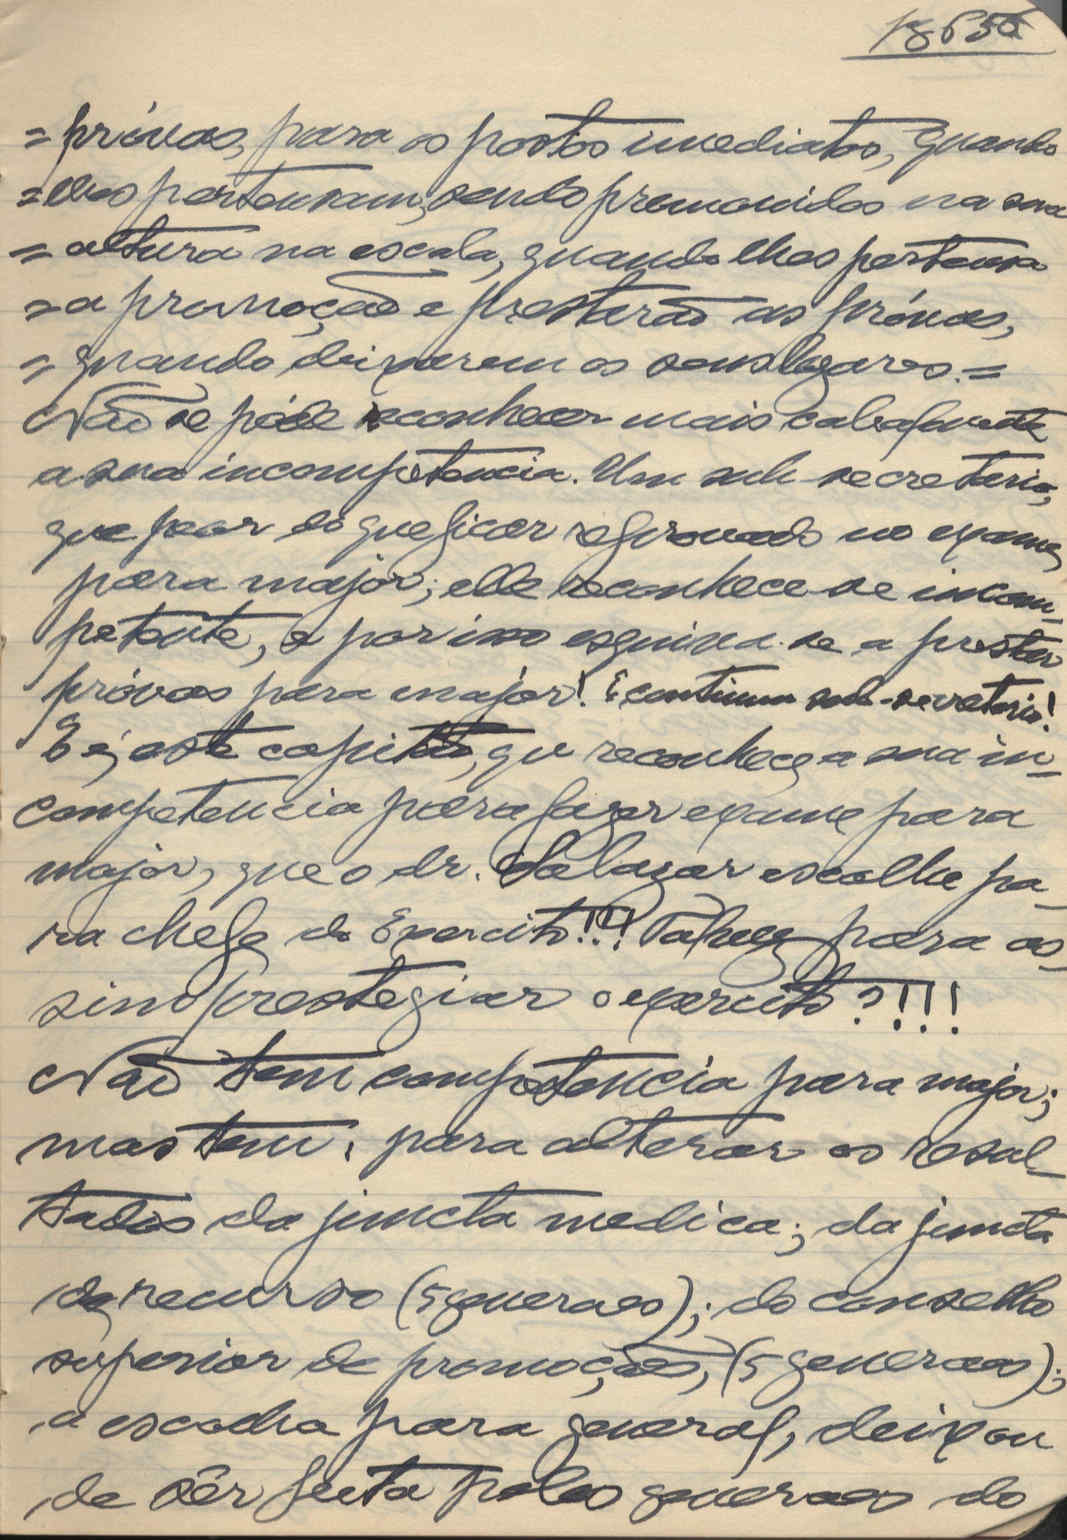 1865a
= próvas, para os postos imediatos, quando
= elles pertensam, sendo premovidos na sua
= altura na escala, quando lhes pertensa
= a promoção e prestarão as próvas,
= quando deixarem os seus lugares. =
Não se póde reconhecer mais cabalmente
a sua incompetencia. Um sub-secretario,
que peor do que ficar reprovado no exame
para major; elle reconhece-se incom-
petente, e por isso esquiva-se a prestar
próvas para major! E continua sub-secretario!
E é, este capitão, que reconheçe a sua in-
competencia para fazer exame para
major, que o dr. Salazar escolhe pa-
ra chefe do Exercito!!! Talvez para as-
sim prestegiar o exercito?!!!
Não tem competencia para major;
mas tem, para alterar os resul-
tados da juncta medica; da juncta
de recurso (5 generaes); do conselho
superior de promoções, (5 generaes);
a escolha para general, deixou
de sêr feita pelos generaes do